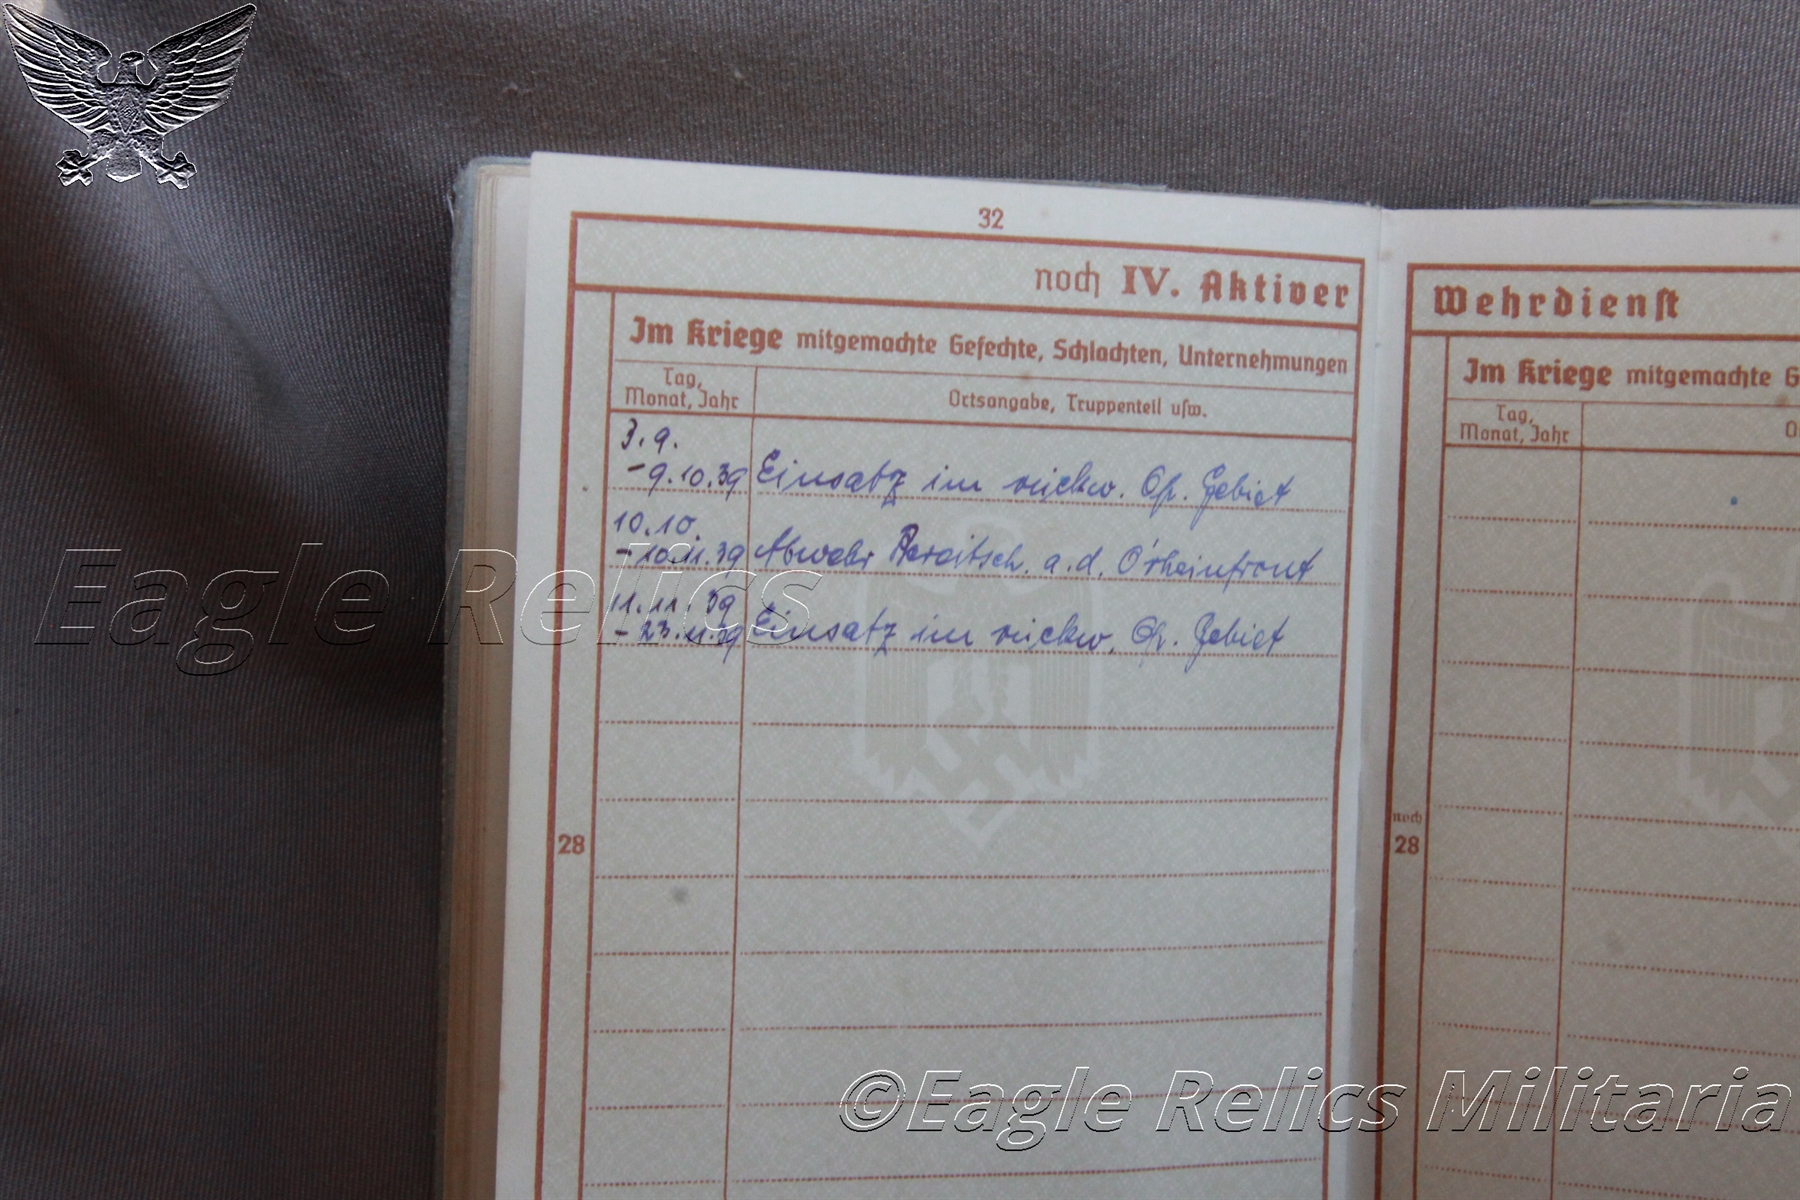 32
noch IV. Aktiver
Im Kriege mitgemachte Gefechte, Schlachten, Unternehmungen
Tag,
Monat, Jahr
Ortsangabe, Truppenteil usw.
3.9.
-9.10.39 Einsatz im rückw. Op. Gebiet
10.10.
-10.11.39 Abwehr Bereitsch. a.d. O'rheinfront
11.11.39
-23.11.39 Einsatz im rückw. Op. Gebiet
28
Wehrdienst
Im Kriege mitgemachte G
Tag,
Monat, Jahr
O
noch
28
Eagle Relics
©Eagle Relics Militaria